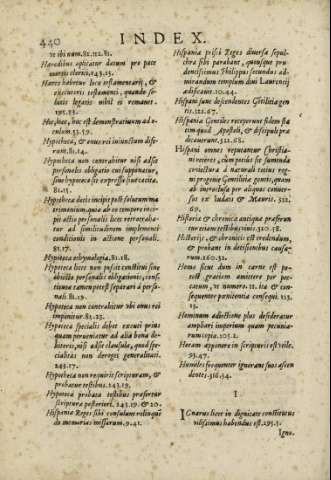 440
INDEX.
te ibi num. 81. 112. 81.
Hæreditas explicatur datum pro pate
Hæres habetur loco testamentarij, &
executores testamenti, quando so-
luis legatis nihil ei remanet.
195. 23.
Hic, hæc, hoc est demonstratiuum ad o-
culum. 53. 59.
Hypotheca, & onus rei iniunctum diffe-
runt. 81. 14.
Hypotheca non contrahitur nisi adsit
personalis obligatio cui supponatur,
siue hypoteca sit expressa siue tacita.
81. 15.
Hypotheca dotis incipit post solutum ma
trimonium, quia ab eo tempore inci-
pit actio personalis licet retrotraha-
tur ad similitudinem implementi
conditionis in actione personali.
81. 17.
Hypoteca 81. 18.
Hypoteca licet non possit constitui sine
obiectæ personalis obligationis, consti-
tuta tamen potest separari à perso-
nali. 81. 19.
Hypoteca non contrahitur ubi onus rei
imponitur. 81. 23.
Hypoteca specialis debet excuti prius
quam perueniatur ad alia bona de-
bitoris, nisi adsit clausula, quod spe-
cialitas non deroget generalitati.
243. 17.
Hypotheca non requirit scripturam, &
probatur testibus. 243. 19.
Hypoteca probata testibus præfertur
scriptura posteriori. 243. 19. & 20.
Hispaniæ Reges sibi consulunt relinquẽ
do memorias missarum. 9. 41.
Hispania prisci Reges diuersa sepul-
chra sibi parabant, quousque pru-
dentissimus Philippus secundus ad-
mirandum templum diui Laurencij
adificauit. 10. 44.
Hispani sunt descendentes Gotilitia gen-
tis. 122. 67.
Hispania Gentiles receperunt fidem sta
tim quod Apostoli, & discipuli præ
dicauerunt. 322. 68.
Hispani omnes reputantur Christia-
ni veteres, cum potius sit sumenda
coniectura à naturali totius reg-
ni progenie Gentilitia gentis, quam
ab introductis per aliquos conuer-
sos ex Iudæis & Mauris. 322.
69.
Historia & chronica antiqua præferun
tur etiam testibus viuis. 310. 58.
Historijs, & chronicis est credendum,
& probant in detestibus causa-
rum. 260. 32.
Homo sicut dum in carne est po-
test gratiam amittere per pec-
catum, vt numero. 12. ita & con-
sequenter pœnitentia consequi. 123.
13.
Hominum adiectione plus desideratur
ampliari imperium quam pecunia-
rum copia. 105. 2.
Horam apponere in scripturis est vtile.
93. 47.
Humiles frequenter ignorant suos ascen
dentes. 316. 94.
I
IGnarus licet in dignitate constitutus
vilissimus habendus est. 295. 3.
Igno-